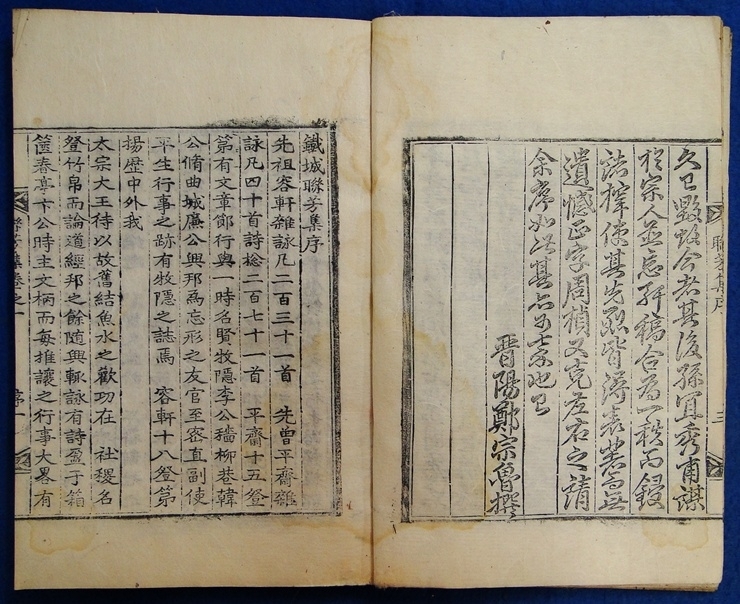 久已毁蚀今者其後孫宜秀甫謀
於宗人並忘軒稿合為一秩而鋟
諸榟使其先烈皆得表著而無
遺憾正字周楨又克左右之請
余序如此其亦可士家也已
晋陽鄭宗魯撰
聯芳集序
三
鐵城聯芳集序
先祖容軒雜詠凡二百三十一首 先曾平齋雜
詠凡四十首詩楡二百七十一首 平齋十五登
第有文章節行與一時名賢牧隱李公穡柳巷韓
公脩曲城廉公興邦爲忘形之友官至密直副使
平生行事之跡有牧隱之誌焉 容軒十八登第
揚歷中外我
太宗大王待以故舊結魚水之歡功在 社稷名
登竹帛而論道經邦之餘随興輙詠有詩盈于箱
篋春亭卞公時主文柄而每推讓之行事大畧有
聯芳集卷之一
序一